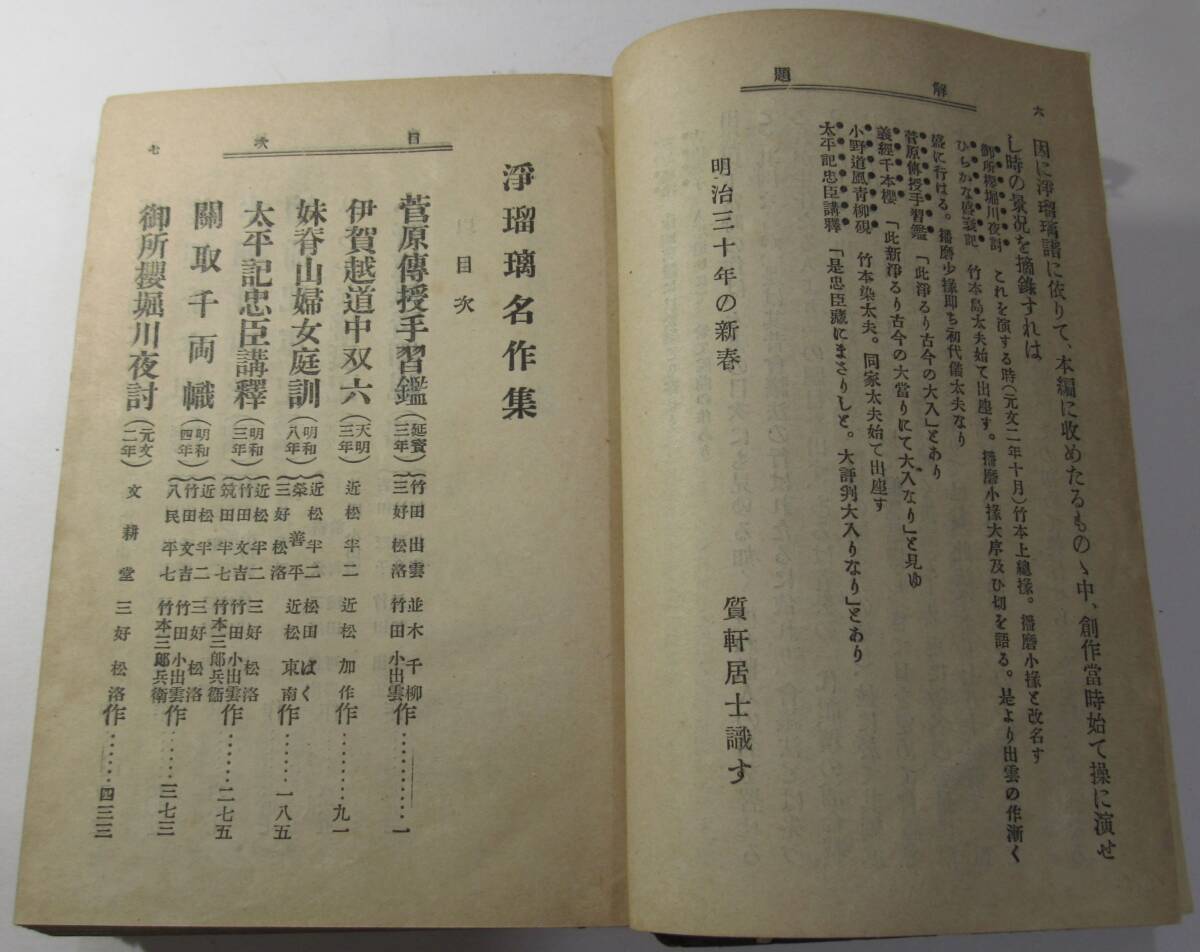 解題
六
因に淨瑠璃譜に依りて、本編に收めたるものゝ中、創作當時始て操に演せ
し時の景况を摘錄すれは
御所櫻堀川夜討 これを演する時(元文二年十月)竹本上總掾。播磨小掾と改名す
ひらかな盛衰記 竹本島太夫始て出座す。播磨小掾大序及ひ切を語る。是より出雲の作漸く
盛に行はる。播磨少掾即ち初代儀太夫なり
菅原傳授手習鑑 「此淨るり古今の大入」とあり
義經千本櫻 「此新淨るり古今の大當りにて大入なり」と見ゆ
小野道風青柳硯 竹本染太夫。同家太夫始て出座す
太平記忠臣講釋 「是忠臣藏にまさりしと。大評判大入りなり」とあり
明治三十年の新春
質軒居士識す
目次
七
淨瑠璃名作集
目次
菅原傳授手習鑑(延寳三年) 竹田出雲 並木千柳 三好松洛 竹田小出雲 作………一
伊賀越道中双六(天明三年) 近松半二 近松加作 作………九一
妹脊山婦女庭訓(明和八年) 近松半二 松田ばく 榮善平 近松東南 三好松洛 作………一八五
太平記忠臣講釋(明和三年) 近松半二 三好松洛 竹田文吉 竹田小出雲 筑田半七 竹本三郎兵衞 作………二七五
關取千両幟(明和四年) 近松半二 三好松洛 竹田文吉 竹田小出雲 八民平七 竹本三郎兵衞 作………三七三
御所櫻堀川夜討(元文二年) 文耕堂 三好松洛 作………四三三